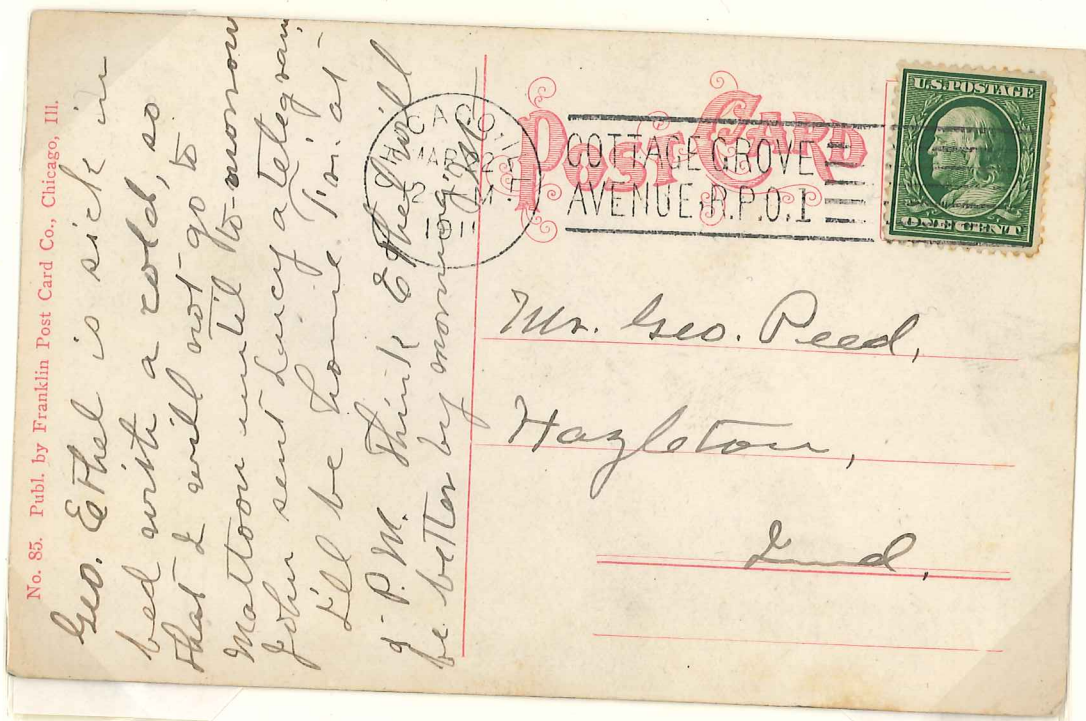 No. 85. Publ. by Franklin Post Card Co., Chicago, Ill.
Geo. Ethel is sick in
bed with a cold, so
that I will not go to
Mattoon until to-morrow
John sent Lucy a telegram
I'll be home Fri. at
P. M. Think Ethel will
be better by morning.
POST CARD
CHICAGO, ILL
MAR 2
1911
COTTAGE GROVE
AVENUE, R.P.O. 1
U.S. POSTAGE
ONE CENT
Mr. Geo. Reed,
Hazleton,
Ind.